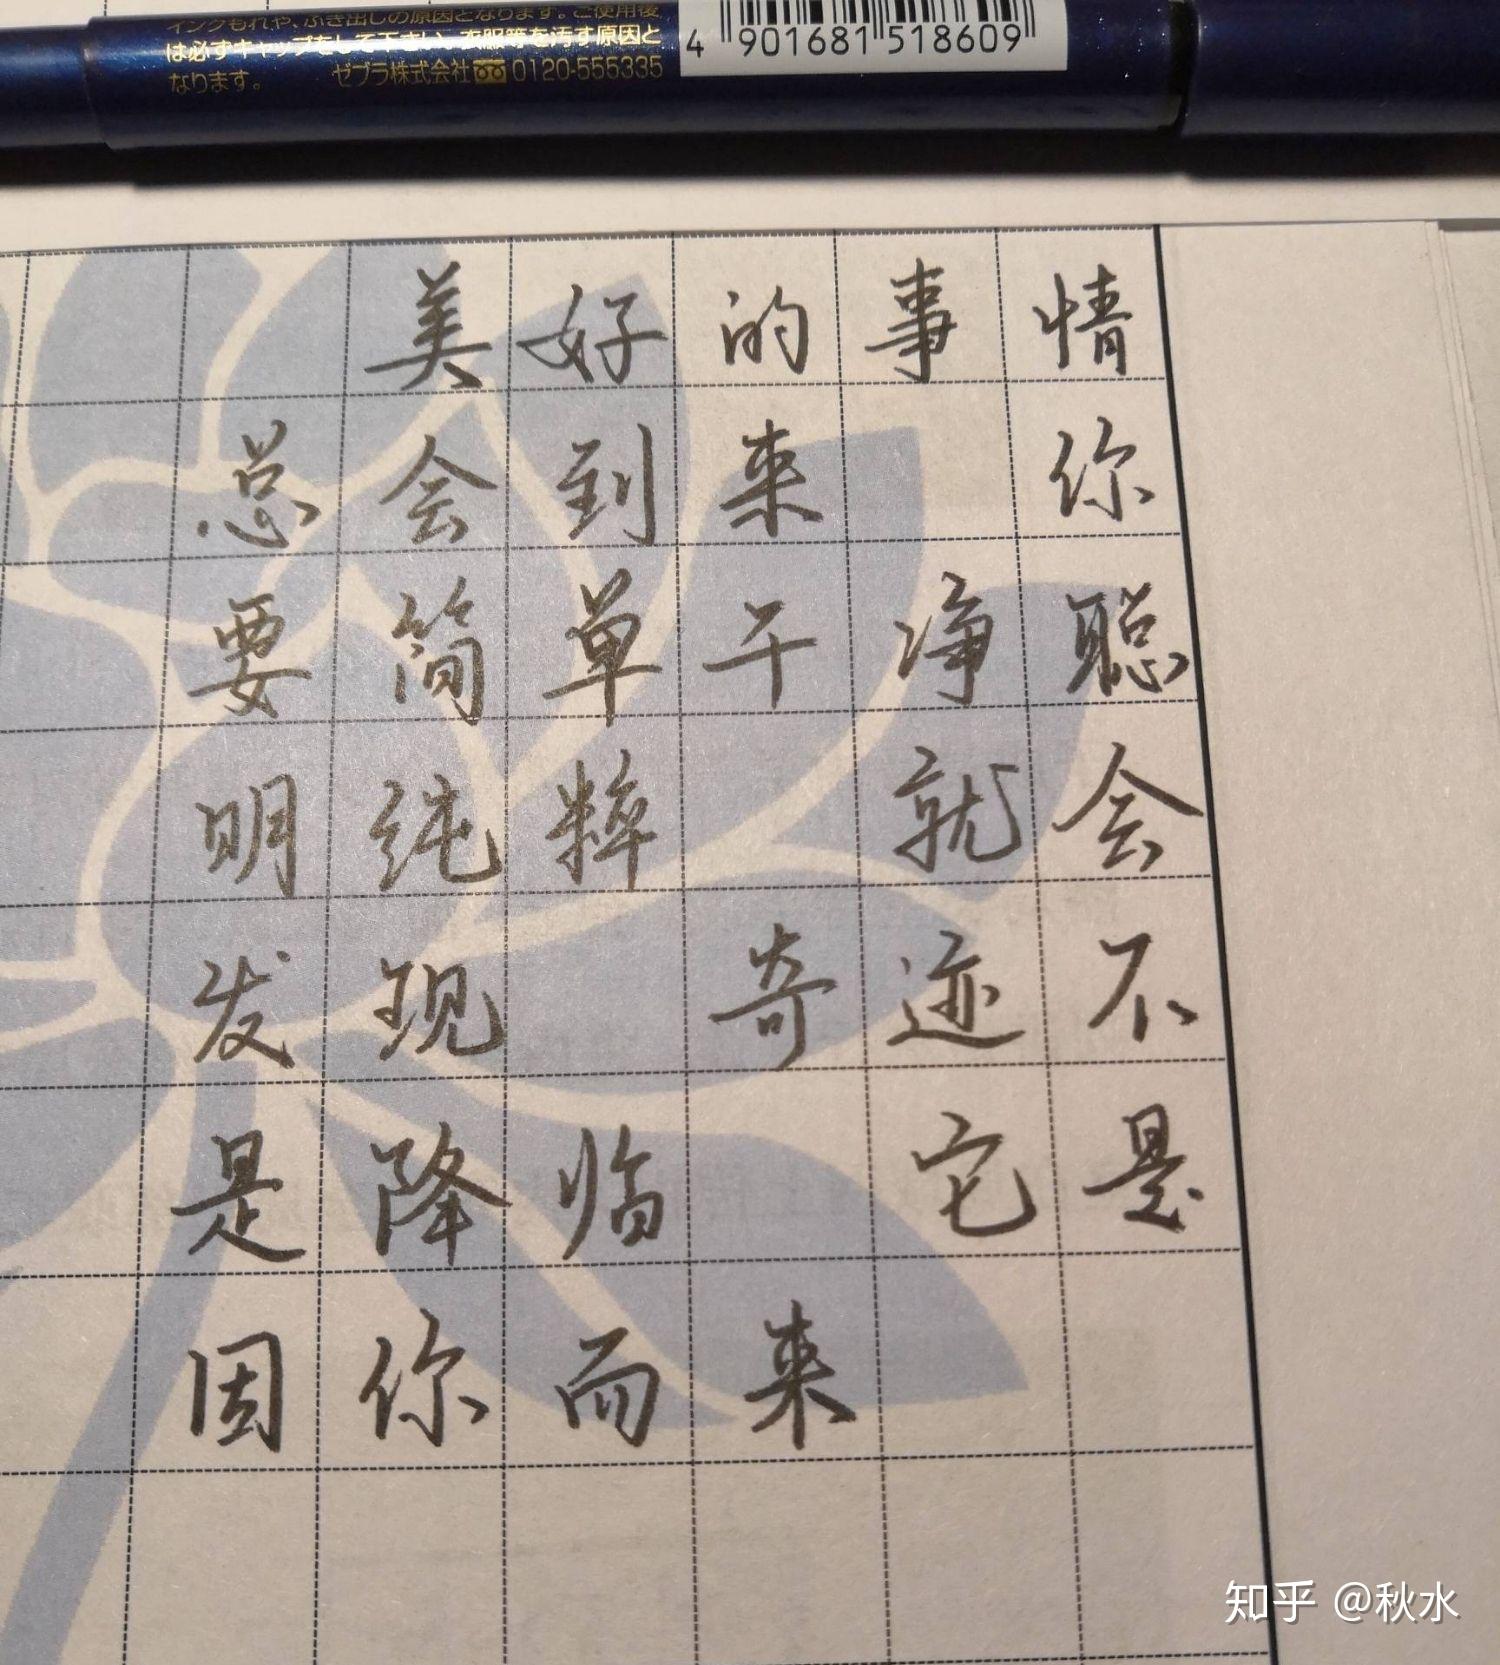 インクもれや、ふき出しの原因となります。ご使用後
は必ずキャップをして下さい。衣服等を汚す原因と
なります。 ゼブラ株式会社 0120-555335
4 901681 518609
美好的事情
总会到来 你
要简单干净聪
明纯粹 就会
发现 奇迹不
是降临 它是
因你而来
知乎 @秋水